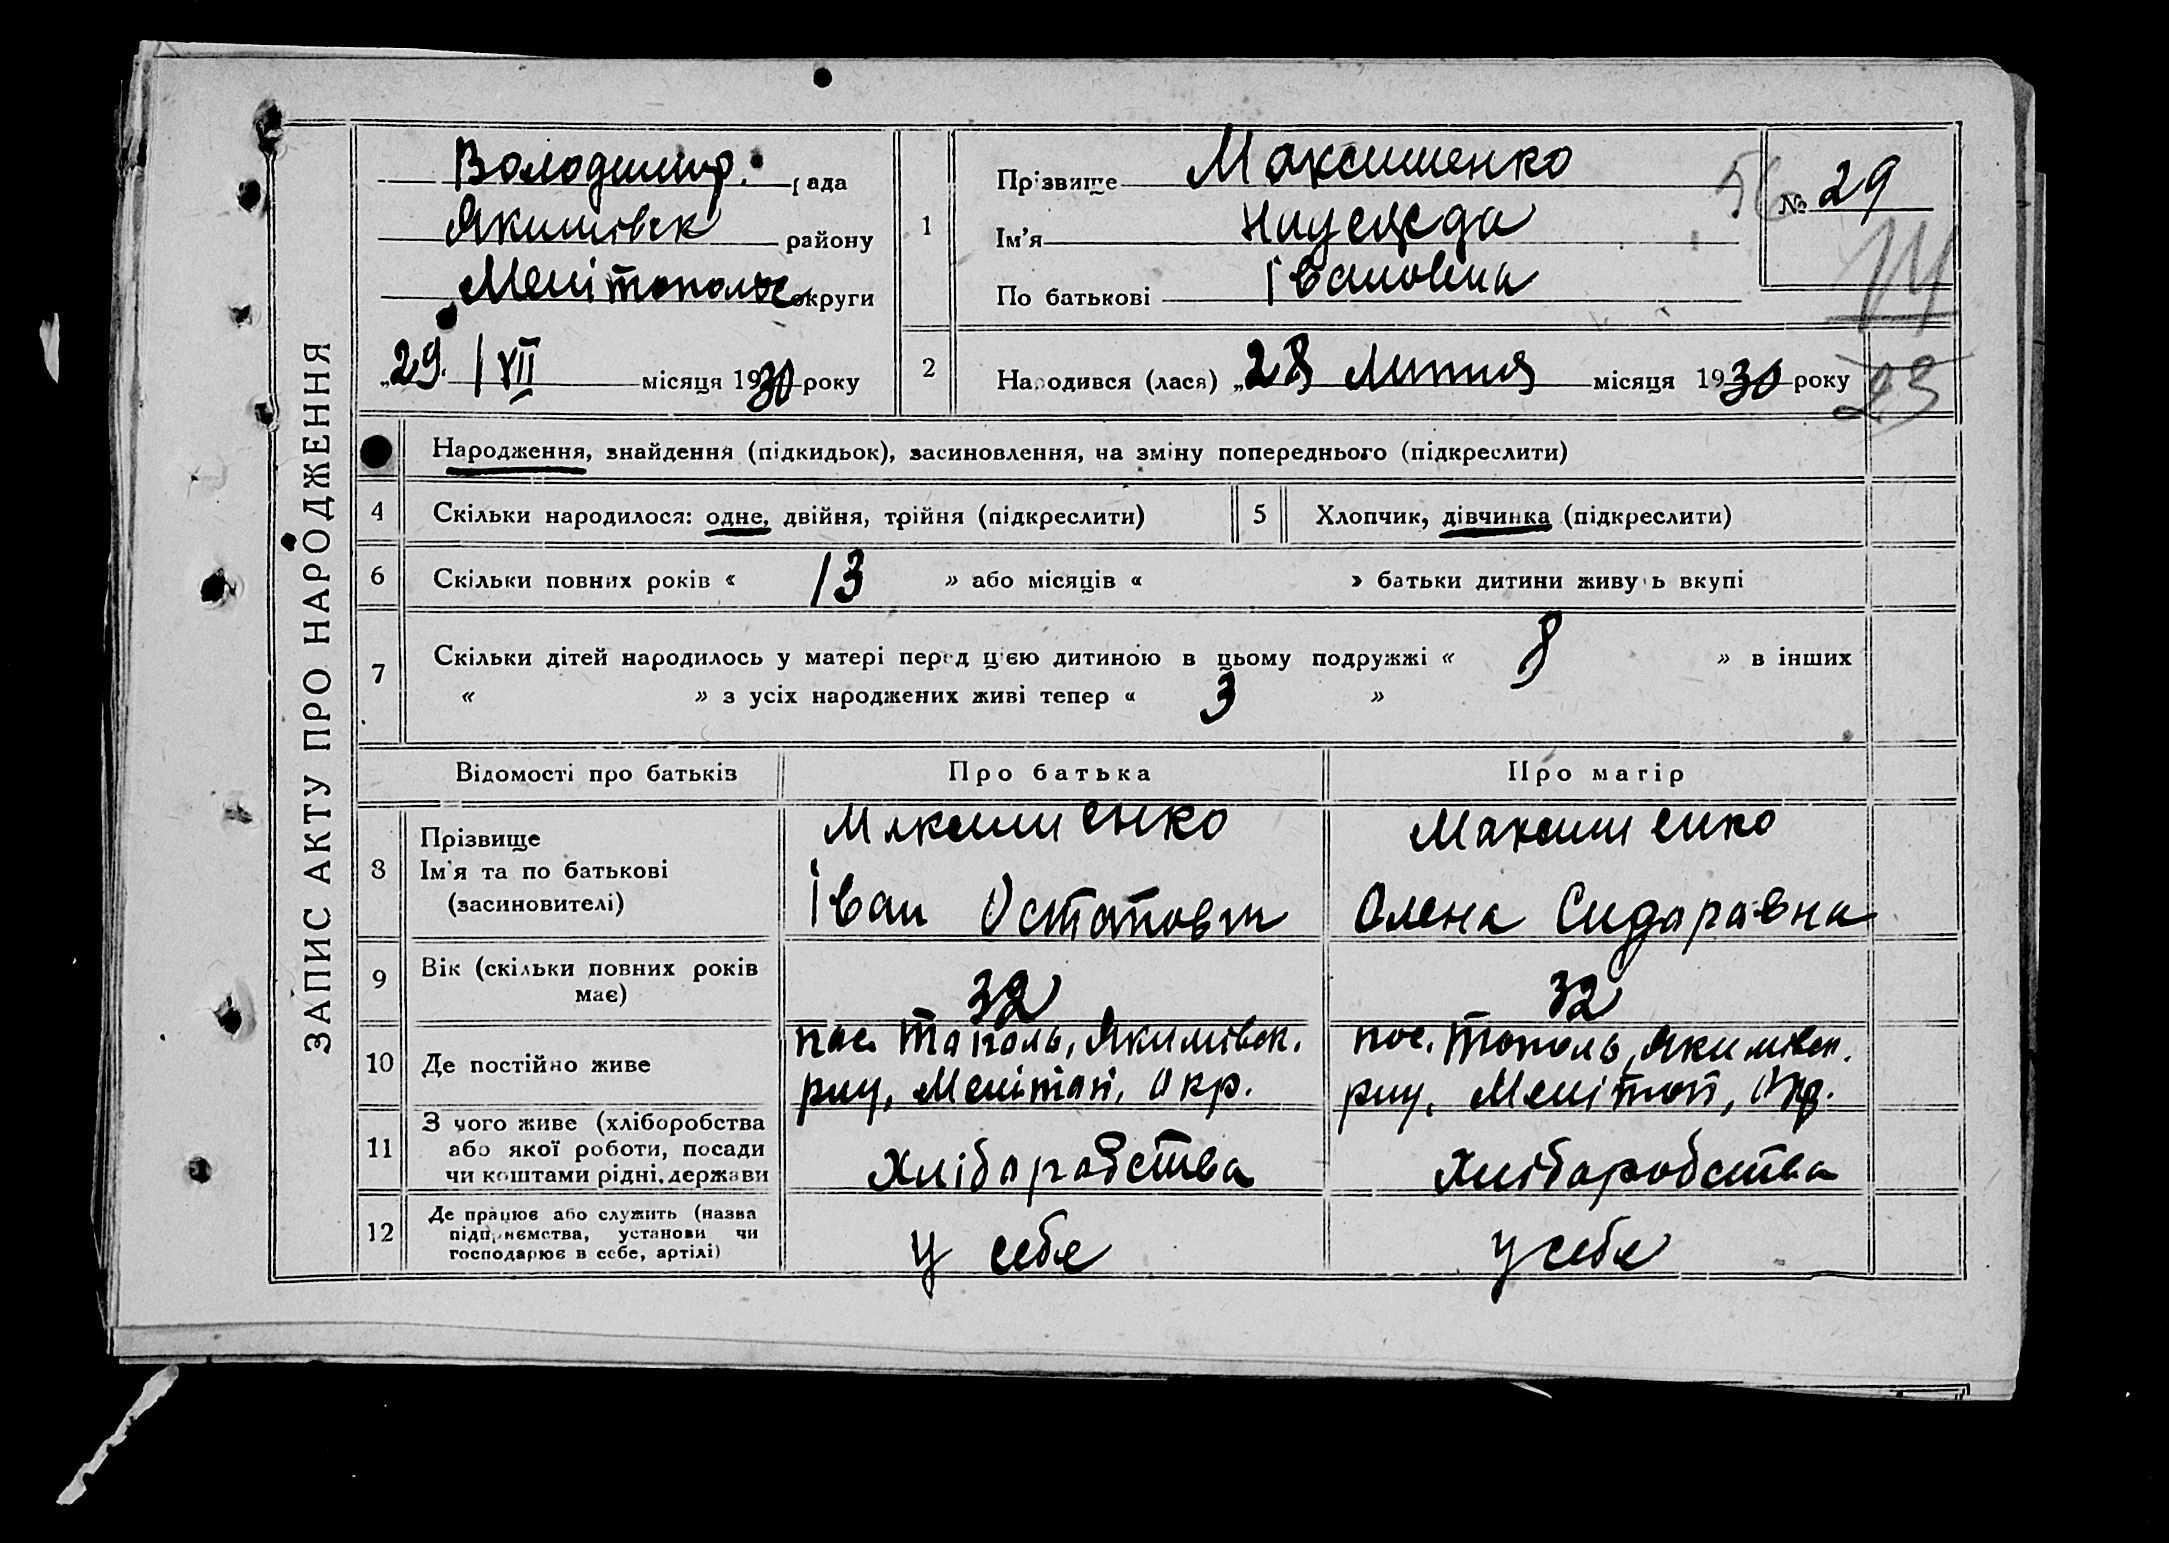 ЗАПИС АКТУ ПРО НАРОДЖЕННЯ
Володимир. рада
Якимівск району
Мелітопольс округи
„29. / VII місяця 1930 року
1
Прізвище Максименко
Ім'я Надежда
По батькові Івановна
№ 29
14
23
2
Народився (лася) „28 Липня місяця 1930 року
Народження, знайдення (підкидьок), засиновлення, на зміну попереднього (підкреслити)
4 Скільки народилося: одне, двійня, трійня (підкреслити)
5 Хлопчик, дівчинка (підкреслити)
6 Скільки повних років « 13 » або місяців « » батьки дитини живуть вкупі
7 Скільки дітей народилось у матері перед цією дитиною в цьому подружжі « 8 » в інших
« » з усіх народжених живі тепер « 3 »
Відомості про батьків
Про батька
Про матір
8
Прізвище
Ім'я та по батькові
(засиновителі)
Максименко
Іван Остапович
Максименко
Олена Сидаравна
9
Вік (скільки повних років
має)
32
32
10 Де постійно живе
пос. Таполь, Якимівск.
рну, Мелітоп, Окр.
пос. Тополь, Якимівск.
рну, Мелітоп, Окр.
11
З чого живе (хліборобства
або якої роботи, посади
чи коштами рідні, держави
Хлібаробства
Хлібаробства
12
Де працює або служить (назва
підприємства, установи чи
господарює в себе, артілі)
у себе
у себе